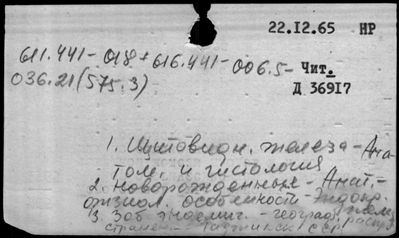 22.IZ.65 НР
611.441-018+616.441-006.5-
Чит.
036.21(575.3)
Д 36917
1. Щитовидн. железа - Ана-
том. и гистология
2. Новорожденных - Анат.-
физиол. особенности - Эндокр. желез
3. Зоб эндемич. - географ. распр.
странен. - Таджикск. ССР